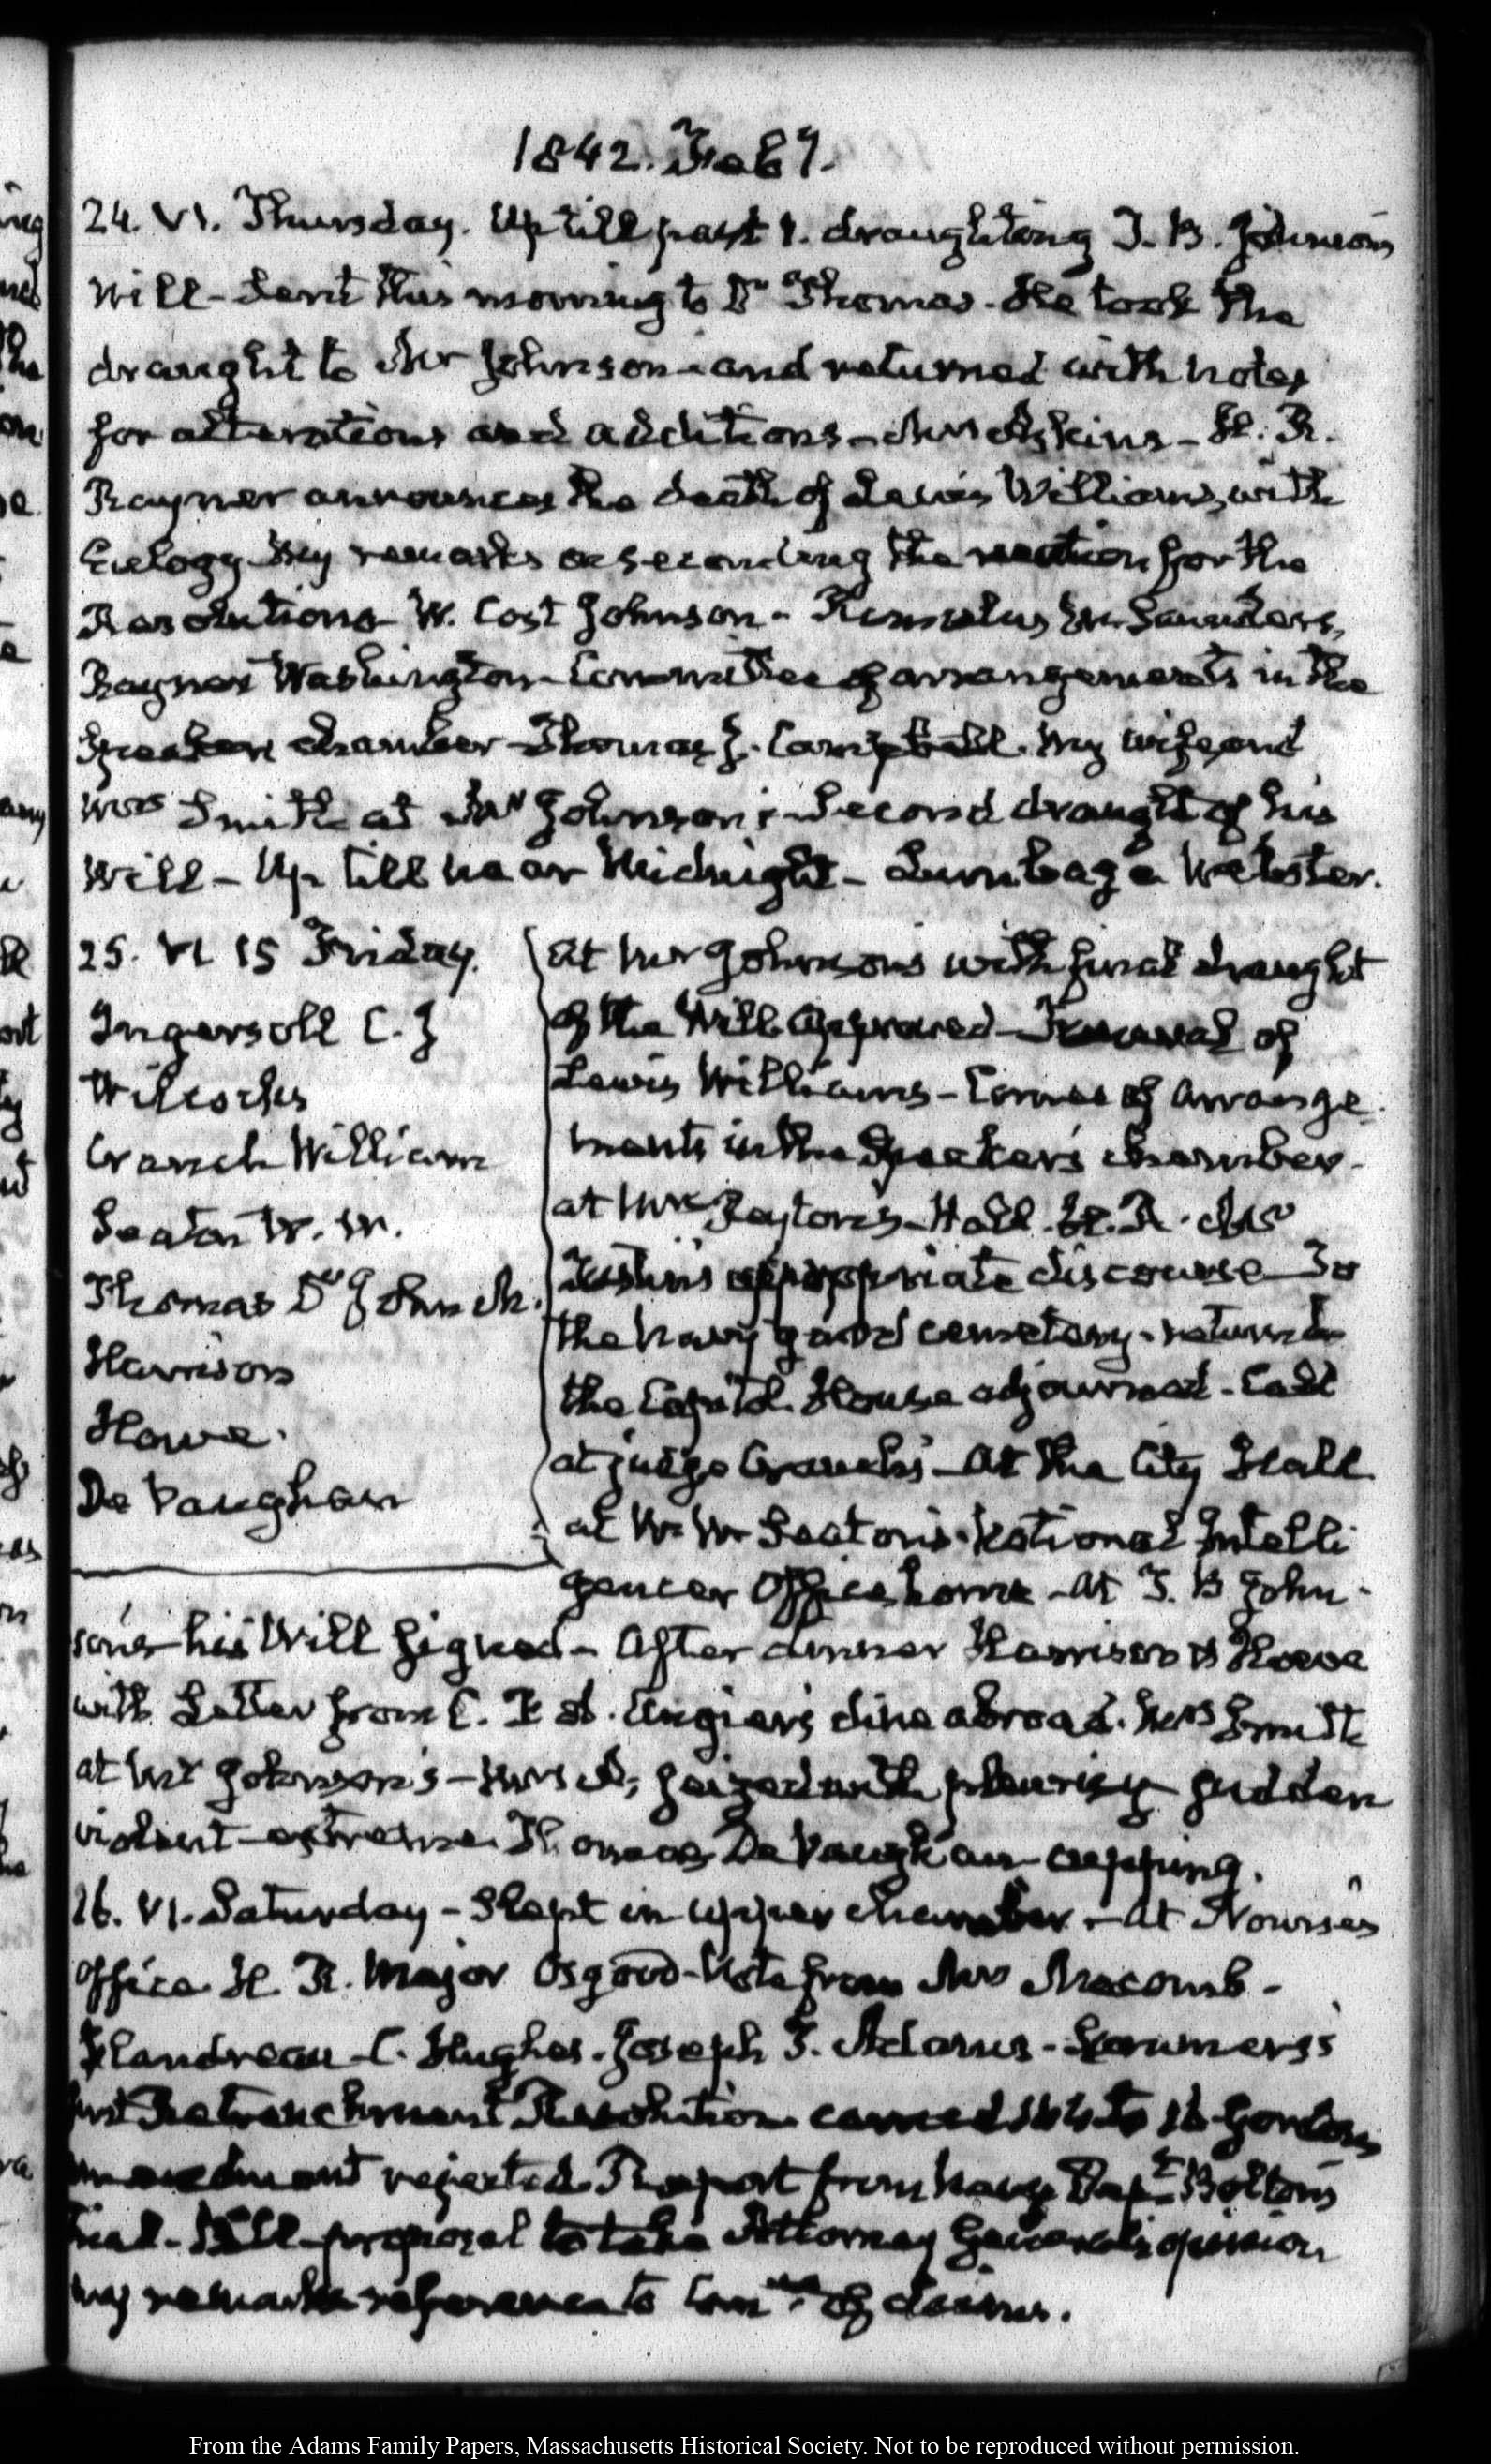 1842. Feby.
24. VI. Thursday. Up till past 1. draughting T. B. Johnson's
Will - Sent this morning to Dr Thomas - He took the
draught to Mr Johnson - and returned with notes
for alterations and additions - Mrs Adkins - H. R.
Rayner announces the death of Lewis Williams, with
Eulogy - My remarks on seconding the motion for the
Resolutions - W. Cost Johnson - Romulus M. Saunders,
Rayner Washington - Committee of arrangements in the
Speaker's chamber - Thomas J. Campbell. My wife and
Mrs Smith at Mr Johnson's - Second draught of his
Will - Up till near Midnight - Lumbago Webster.
25. VI 15 Friday.
Ingersoll C. J
Wilcocks
Cranch William
Seaton W. W.
Thomas Dr John M.
Harrison
Howe.
De Vaughan
at Mr Johnson's with final draught
of the Will Approved - Funeral of
Lewis Williams - Commee of Arrange
ments in the Speaker's chamber -
at Mrs Taylor's - Hall H. R. Mr
Tustin's appropriate discourse - To
the Navy yard cemetery - return to
the Capitol. House adjourned - Call
at judge Cranch's - At the City Hall
at W. W. Seaton's National Intelli
gencer Office home - At T. B John-
son's his Will signed - After dinner Harrison & Howe
with Letter from C. F. A. Angier's dine abroad. Mrs Smith
at Mr Johnson's - Mrs A. seized with pleurisy sudden
violent extreme Thomas De Vaughan cupping.
26. VI. Saturday - Slept in upper chamber - At Nourse's
Office H. R. Major Osgood - Note from Mrs Macomb -
Flandreau - C. Hughes. Joseph T. Adams - Summers's
first Retrenchment Resolution carried to 16 Gordon's
amendment rejected. Report from Navy Dept Bolton's
trial - Bill proposal to take Attorney General's opinion
my remarks reference to Comee of claims.
From the Adams Family Papers, Massachusetts Historical Society. Not to be reproduced without permission.